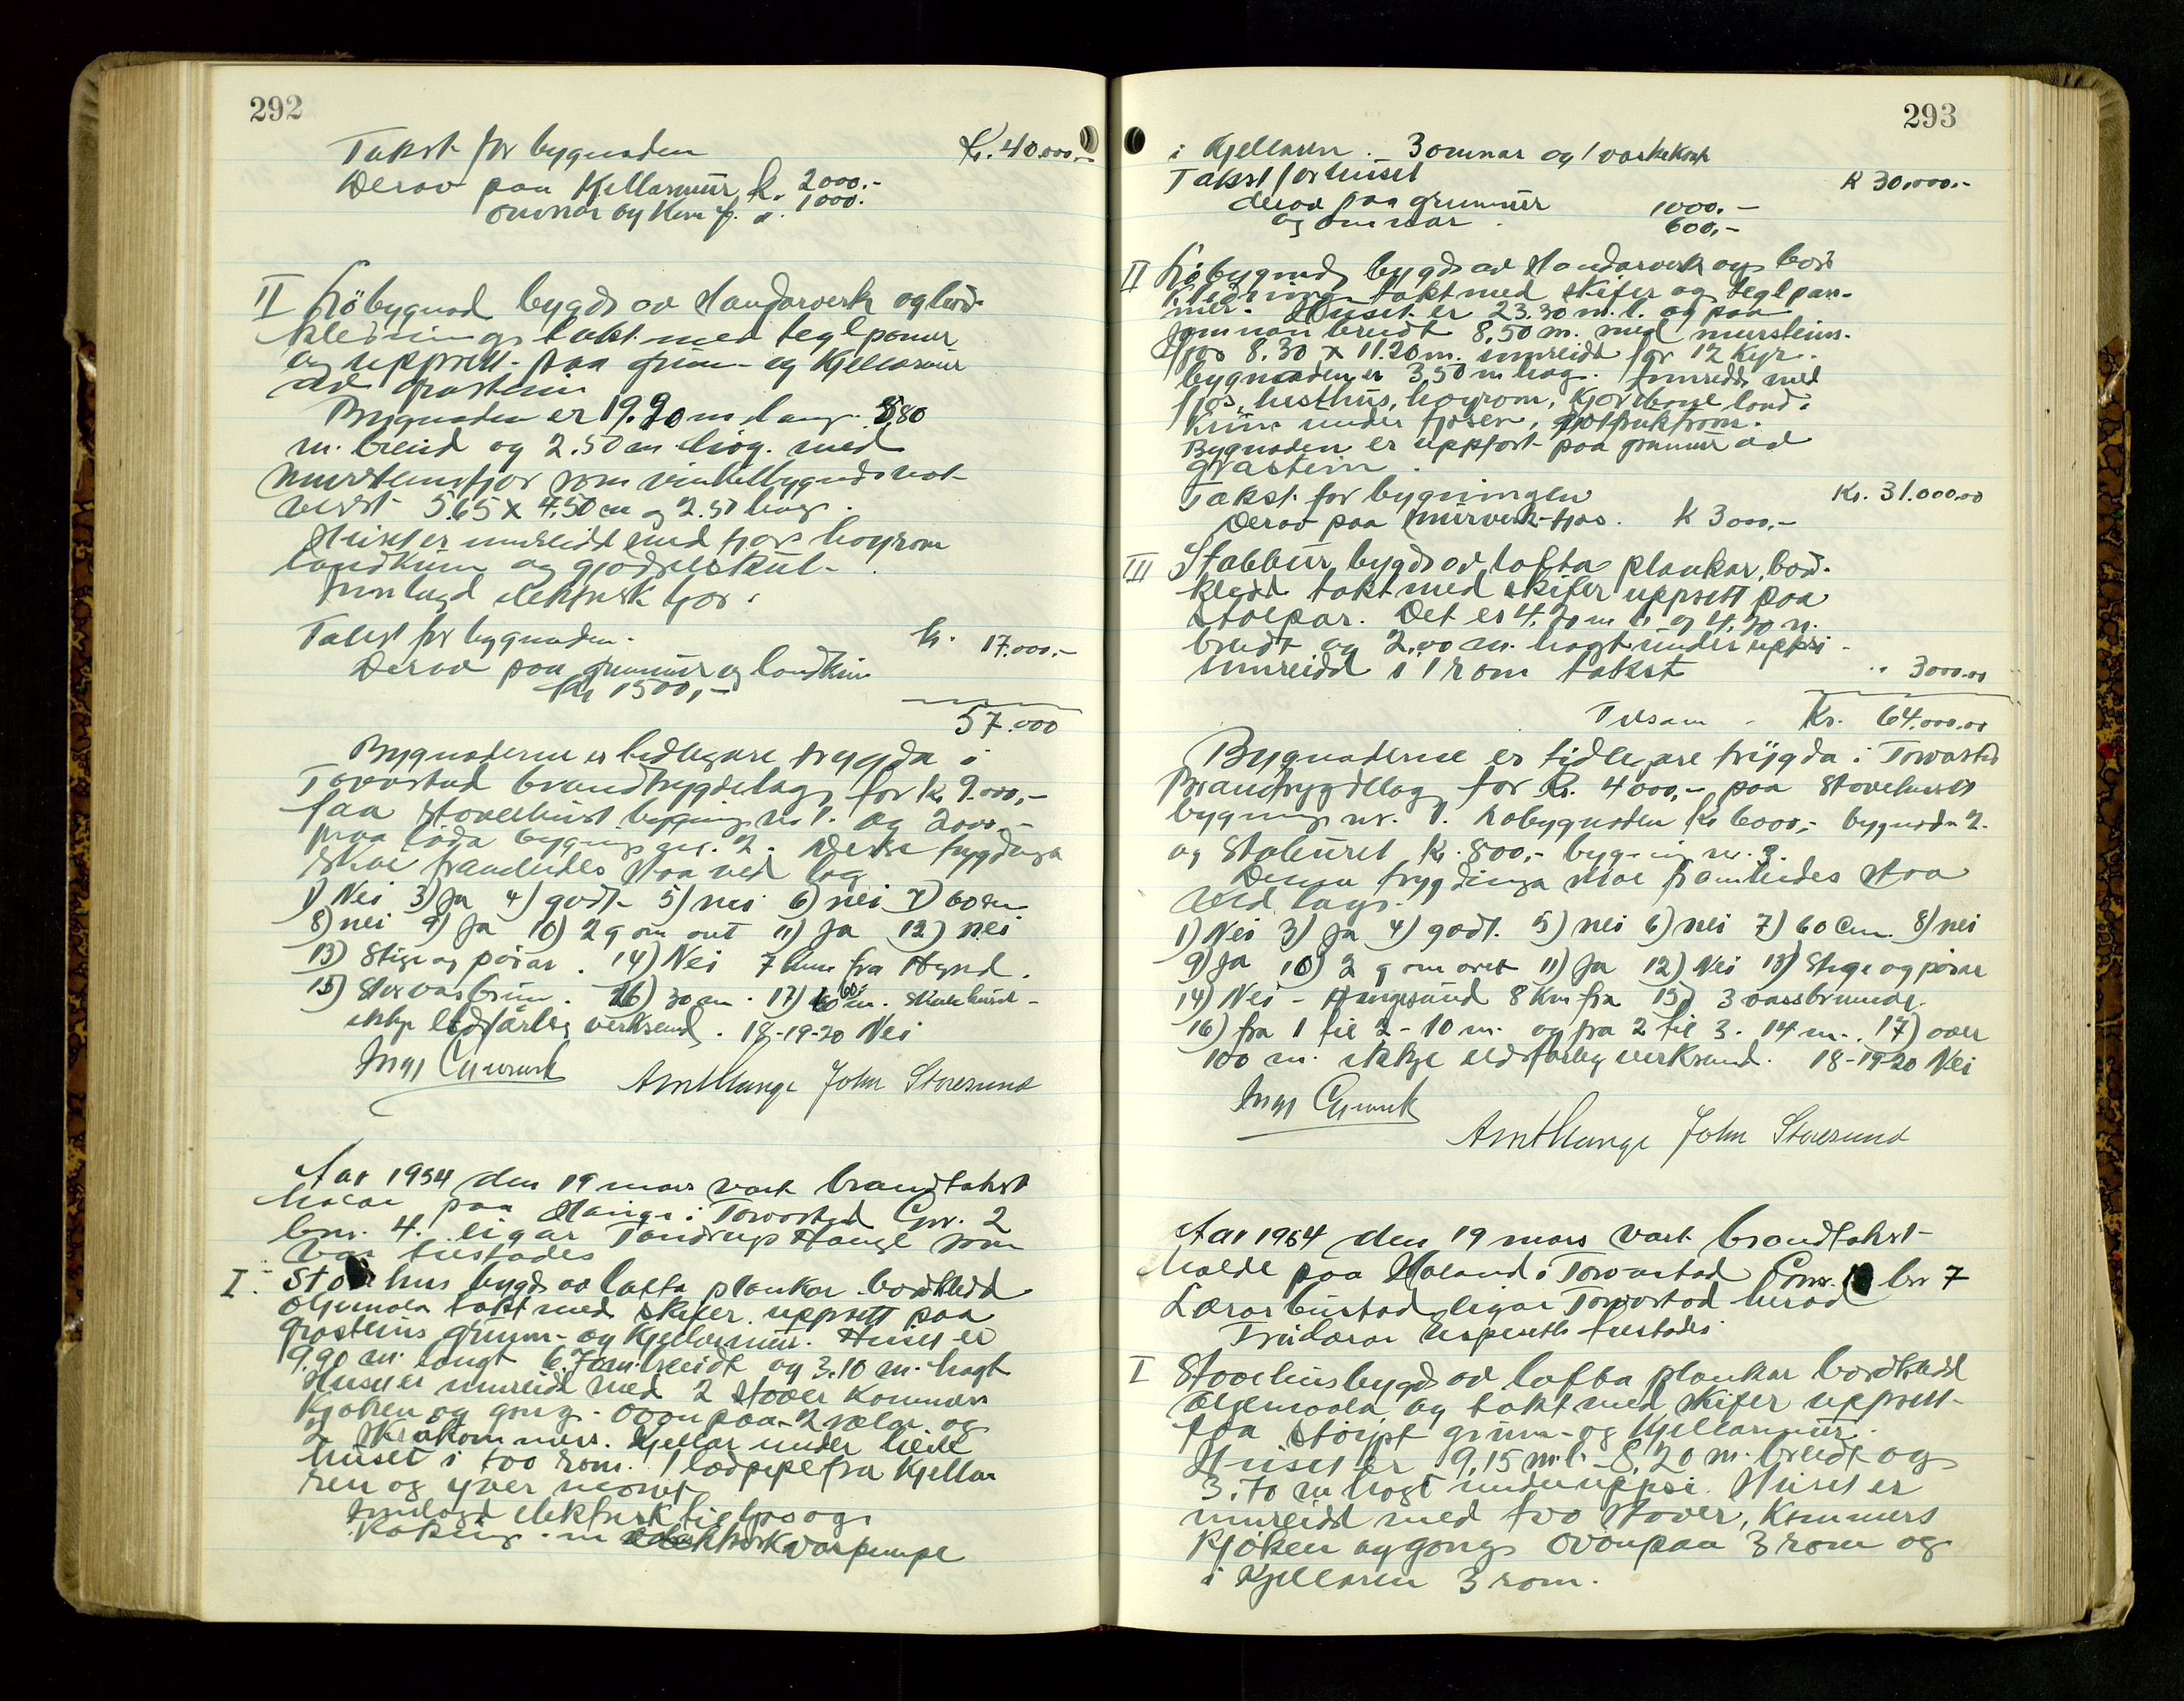 292
Takst for bygnaden Kr. 40.000.-
Derav paa Kjellarmür k. 2000.-
omnar og Kom f. " 1000.-
II Löbygnad bygd av standarverk og bord-
kledning takt med teglpanner
og uppsett paa grun- og Kjellarmür
av grastein
Bygnaden er 19.90 m lang 5.80
m. breid og 2.50 m. høg. med
mursteinsfjos som vinkelbygnad
5.65 x 4.50 m og 2.50 høg.
Huset er innreidt med fjos høyrom
landkum og gjødselskül-
Innlagd elektrisk ljos.
Takst for bygnaden. Kr. 17.000.-
Derav paa grunmür og landkum
Kr 1500,-
57.000
Bygnaderne er tidlegare trygda i
Torvastad brandtrygdelag for Kr. 9.000,-
paa stovehuset bygning nr 1. og 2000,-
paa löda bygning nr. 2. Desse trygdinga
skal framleides staa ved lag
1) Nei 3) Ja 4) godt 5) nei 6) nei 7) 60 cm
8) nei 9) Ja 10) 2 g om aret 11) Ja 12) nei
13) Stige og pösar. 14) Nei 7 km fra Hgsnd.
15) Stor vasbrun. 16) 30 m. 17) 60 m. Skulehuset-
ikkje eldfårleg verksemd. 18-19-20 Nei
John Storesund
Aar 1954 den 19 mars vart brandtakst
halde paa Hauge i Torvastad Gnr. 2
bnr. 4. eigar Tandrup Hauge som
var tilstades
I. Stovehus bygd av lafta plankar bordkledd
oljemala takt med skifer uppsett paa
grasteins grunn- og Kjellarmür. Huset er
9.90 m. langt 6.70 m. breidt og 3.10 m. høgt
Huset er innreidt med 2 stover Kommers
Kjøken og gong. Ovanpaa 2 salar og
2 Kråkommers. Kjellar under heile
huset i tvo rom. 1 lødpipe fra Kjella
ren og yver mønet
Innlagd elektrisk til ljos og
Koking. m elektrisk vaspumpe
293
i Kjellaren. 3 omnar og 1 vaskekom
Takst for huset K 30.000.-
derav paa grunmür 1000.-
og omnar. 600,-
II Löbygnad bygd av standarverk og bord
kledning takt med skifer og teglpan-
ner. Huset er 23.30 m. l. og paa
jamnan breidt 8.50 m. med mursteins-
fjos 8.30 x 11.20 m. innreidd for 12 Kyr.
bygnaden er 3.50 m høg. Innreidd med
fjos, hesthus, høyrom, Kjørebane land-
Küm under fjosen, potfruktrom.
Bygnaden er uppført paa grunmür av
grastein.
Takst for bygningen Kr. 31.000.00
Derav paa mürverk-fjos. K 3000,-
III Stabbür bygd av lafta plankar, bord-
kledd takt med skifer uppsett paa
stolpar. Det er 4.20 m l. og 4.20 m.
breidt og 2.00 m. høgt under uppsi-
Innreidd i 1 rom takst " 3000.00
Tilsam - Kr. 64.000.00
Bygnaderne er tidlegare trygda i Torvastad
Brandtrygdelag for Kr. 4000,- paa stovehuset
bygning nr. 1. Løbygnaden Kr 6000,- bygnad n 2.
og Stabüret Kr. 800,- bygning nr. 3.
Denna trygdinga skal framleides staa
ved lag.
1) Nei 3) Ja 4) godt. 5) nei 6) nei 7) 60 Cm. 8) nei
9) Ja 10) 2 g om aret 11) Ja 12) Nei 13) Stige og pösar
14) Nei - Haugesund 8 Km fra 15) 3 vassbrunnar.
16) fra 1 til 2 - 10 m. og fra 2 til 3. 14 m. 17) over
100 m. ikkje eldfarleg verksemd. 18-19-20 Nei
John Storesund
Aar 1954 den 19 mars vart brandtakst-
halde paa Haland i Torvastad Gnr. bnr 7
Lærarbüstad eigar Torvastad herad
tilstades
I Stovehus bygd av lafta plankar bordkledd
oljemala og takt med skifer uppsett-
paa støypt grunn- og Kjellarmür.
Huset er 9,15 m. l. 8,20 m. breidt og
3.70 m høgt under uppsi. Huset er
innreidd med tvo stover, Kommers
Kjøken og gong ovanpaa 3 rom og
i Kjellaren 3 rom.